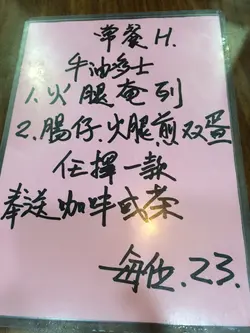 常餐 H.
牛油多士
1. 火腿奄列
2. 腸仔.火腿煎双蛋
任擇一款
奉送咖啡或茶
每位.23.